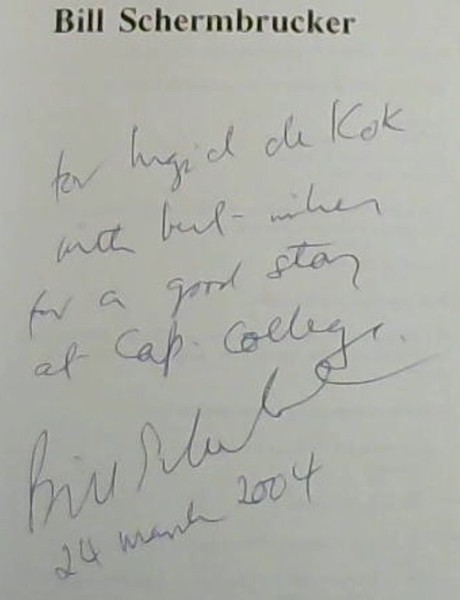 Bill Schermbrucker
for Ingrid de Kok
with best wishes
for a good stay
at Cap. College.
Bill Schermbrucker
24 March 2004